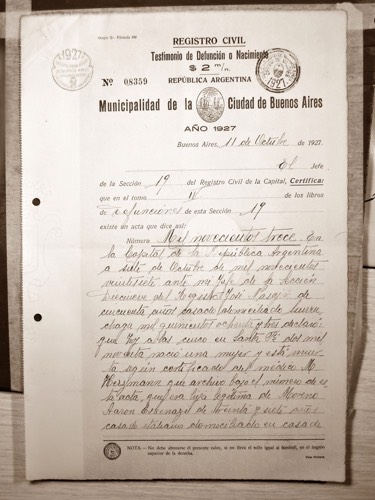 REGISTRO CIVIL
Testimonio de Defunción o Nacimiento
$ 2 m/n.
Nº 08359
REPÚBLICA ARGENTINA
1927
1927
Municipalidad de la Ciudad de Buenos Aires
AÑO 1927
Buenos Aires, 11 de Octubre de 1927.
El Jefe
de la Sección 19 del Registro Civil de la Capital, Certifica:
que en el tomo de los libros
de defunciones de esta Sección 19
existe un acta que dice así:
Número Mil novecientos trece. En
la Capital de la República Argentina
a siete de Octubre de mil novecientos
veintisiete ante mi Jefe de la Sección
Diecinueve del Registro José
cincuenta años casado domiciliado
mil quinientos ochenta y tres declaró:
que hoy a las cinco en Santa Fé dos mil
noventa nació una mujer y está muer
ta según certificado del médico M.
que archivo bajo el número de es
ta acta, que era hija legítima de Moreno
Aaron de treinta y siete años
casado italiano domiciliado en casa de
NOTA.- No debe abonarse el presente valor, si no lleva el sello igual al
superior de la derecha.